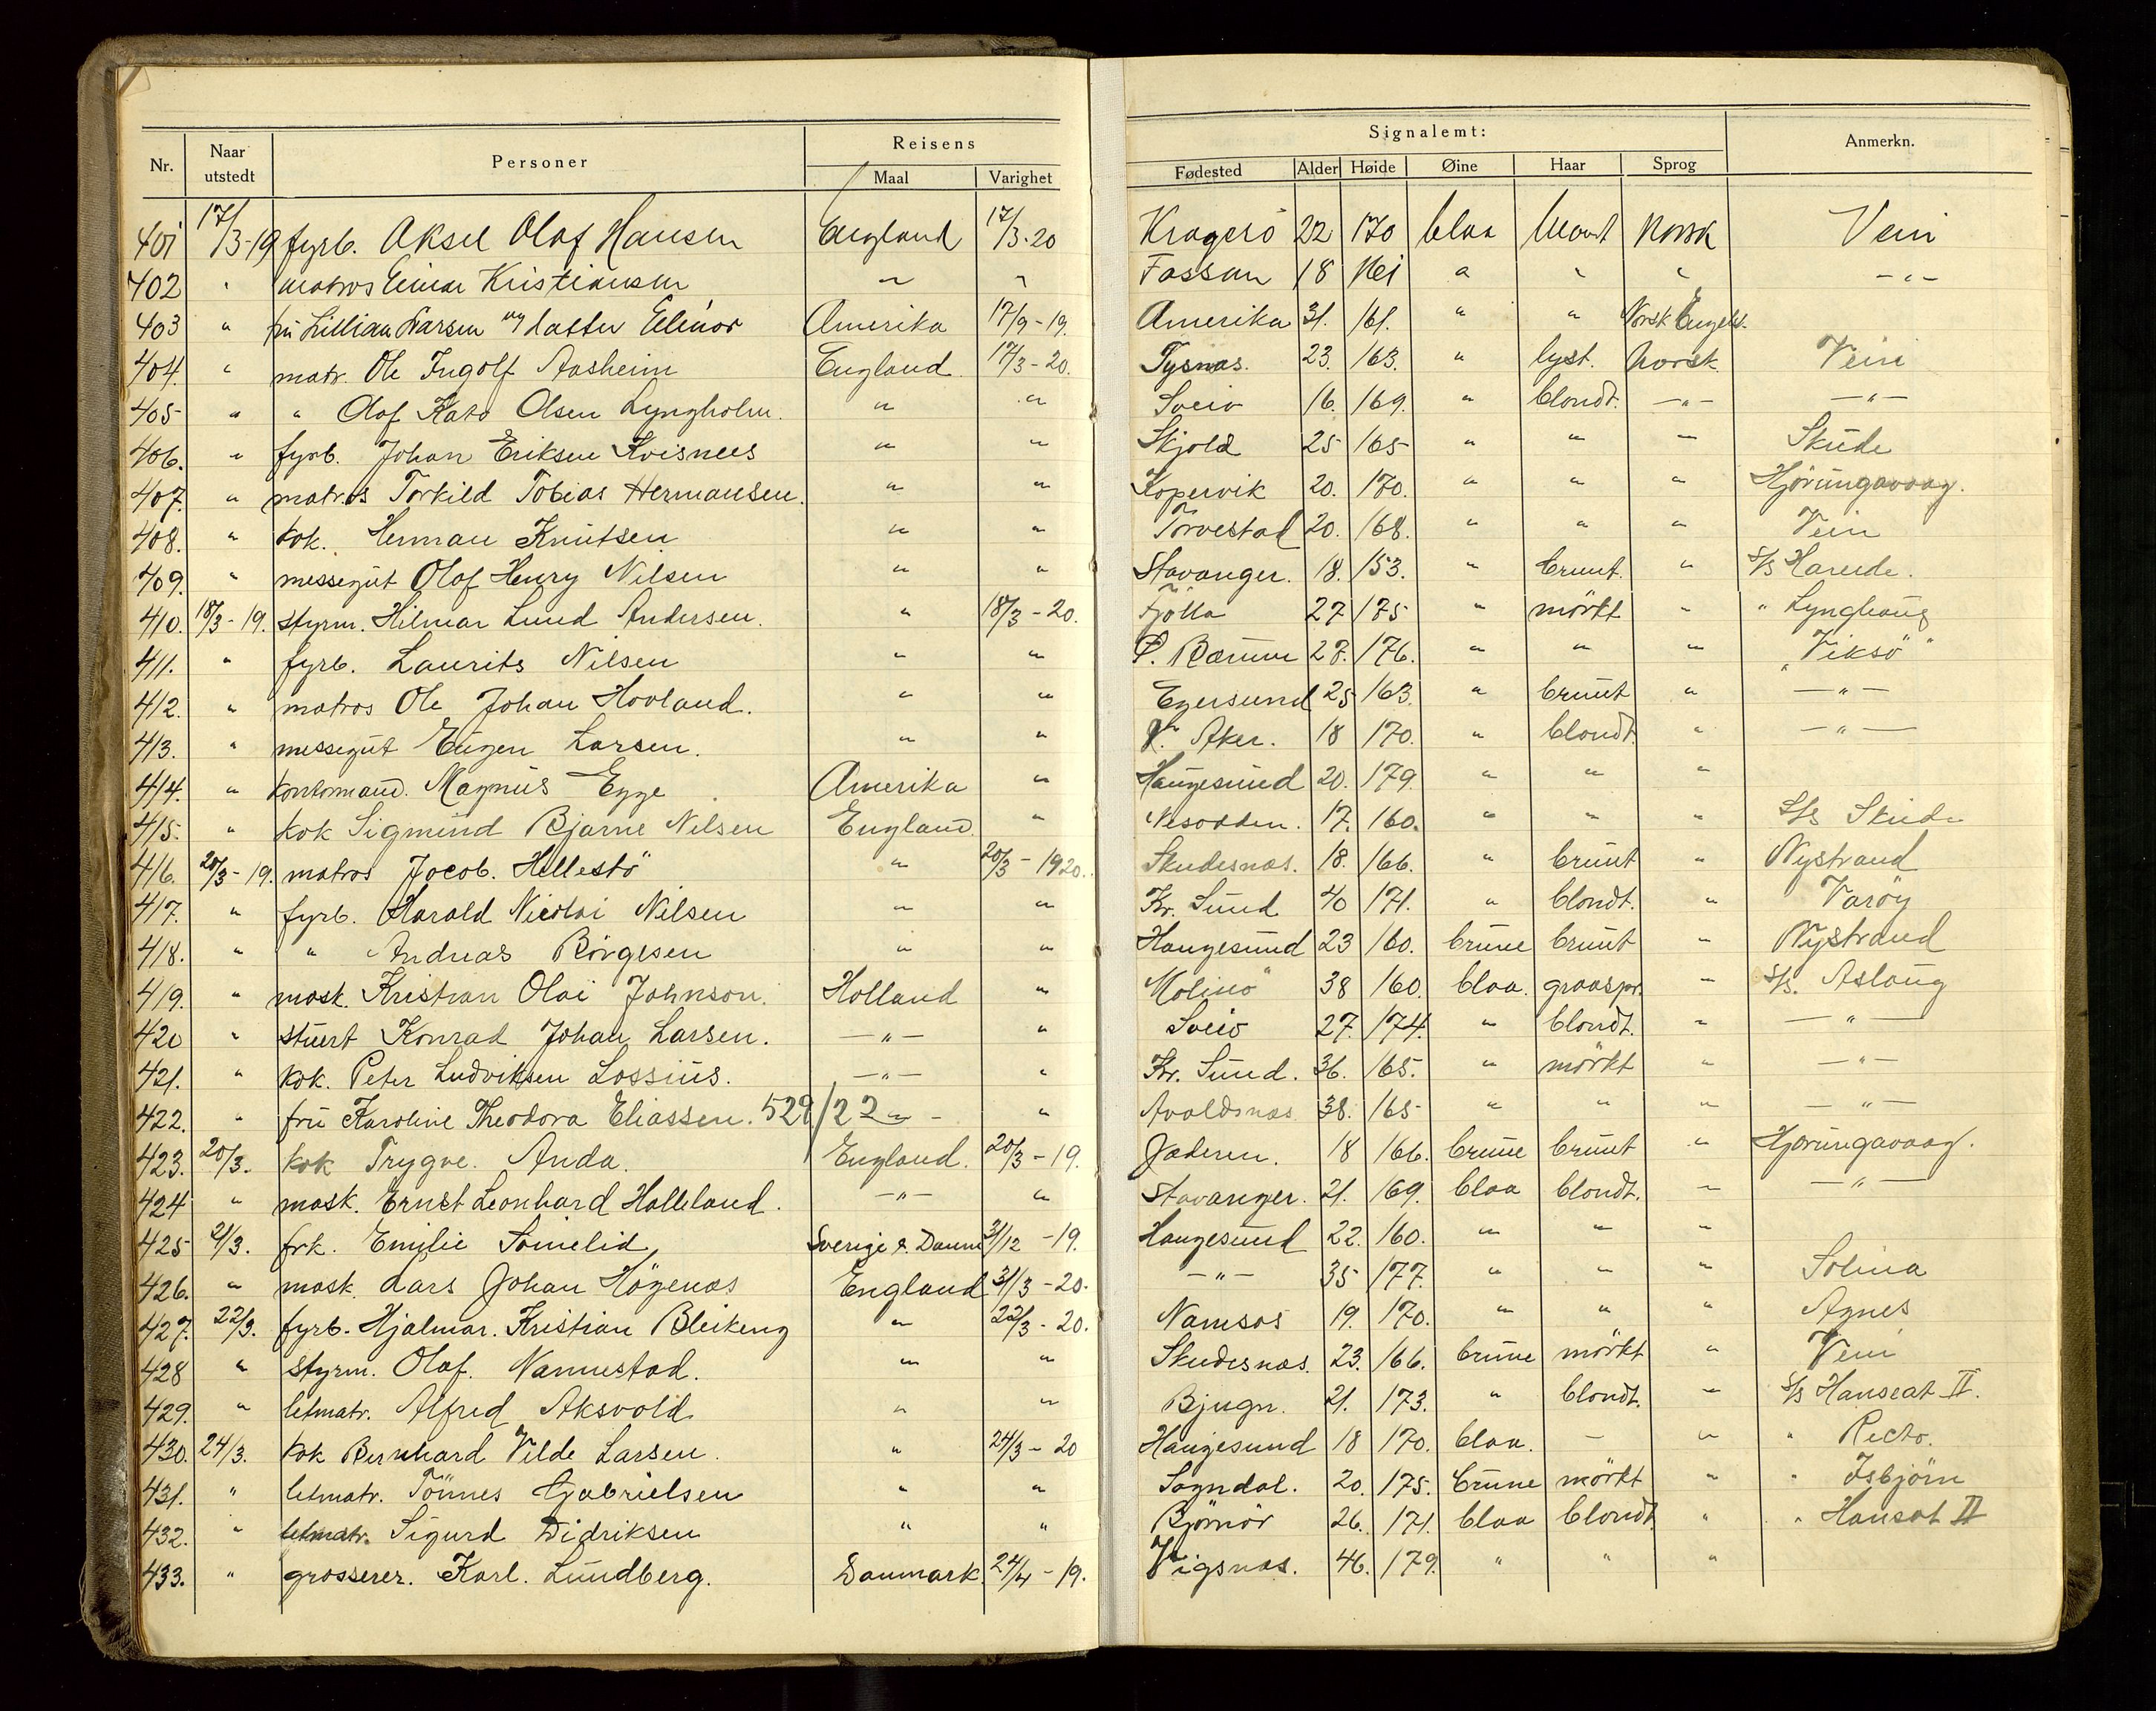 Nr. Naar utstedt Personer Reisens Maal Varighet Signalemt: Fødested Alder Høide Øine Haar Sprog Anmerkn.
401 17/3-19 fyrb. Aksel Olaf Hansen England 17/3-20 Kragerö 22 170 blaa blondt Norsk Vein
402 " matros Einar Kristiansen " " Fossan 18 " " " -"-
403 " fru Lillian Larsen og datter Elinor Amerika 17/9-19. Amerika 31. 161. " " Norsk Engelsk.
404. " matr. Ole Ingolf Aasheim England 17/3-20. Tysnæs. 23. 163. " lyst. Norsk Vein
405 " " Olaf Kato Olsen Lyngholm. " " Sveio 16. 169. " blondt. -"- -"-
406. " fyrb. Johan Eriksen Kvisnees " " Skjold 25 165 " " " Skude
407. " matros Torkild Tobias Hermansen. " " Kopervik 20. 170. " " " Hjörungavaag.
408. " kok. Herman Knutsen " " Torvestad 20. 168. " " " Vein
409. " messegut Olaf Henry Nilsen " " Stavanger. 18. 153. " brunt. " S/S Harene.
410. 18/3-19. styrm. Hilmar Lund Andersen. " 18/3-20. Fjölla 27 175 " mörkt " " Lynghaug
411. " fyrb. Laurits Nilsen " " Ø. Bærum 28. 176. " " " " Viksö"
412. " matros Ole Johan Hovland. " " Egersund 25 163. " brunt " -"-
413. " messegut Eugen Larsen. " " V. Aker. 18 170. " blondt. " -"-
414. " kontormand. Magnus Egge Amerika " Haugesund 20. 179. " " "
415. " kok Sigmund Bjarne Nilsen England. " Nesodden. 17. 160. " " " S/S Skude
416. 20/3-19. matros Jocob. Hillestö " 20/3-1920. Skudesnæs. 18. 166. " brunt " Nystrand
417. " fyrb. Harald Nicolai Nilsen " " Kr. Sund 40 171. " blondt. " Varöy
418. " " Andreas Börgesen " " Haugesund 23 160. brune brunt " Nystrand
419. " mask. Kristian Olai Johnson. Holland " Molinö 38 160. blaa. graaspr. " S/S. Aslaug
420 " stuert Konrad Johan Larsen. -"- " Sveio 27. 174. " blondt. " -"-
421. " kok. Peter Ludviksen Lossius. -"- " Kr. Sund. 36. 165. " mörkt " -"-
422. " fru Karoline Theodora Eliassen. 529/22 " " Avaldsnæs 38. 165 " " " -"-
423. 20/3. kok Trygve. Anda. England. 20/3-19. Jæderen. 18 166. brune brunt " Hjörungavaag.
424 " mask. Ernst Leonhard Halleland. -"- " Stavanger. 21. 169. blaa blondt. " -"-
425 21/3. frk. Emilie Somelid, Sverige & Danm 31/12-19. Haugesund 22. 160. " " "
426. " mask. Lars Johan Högenæs England 31/3-20. -"- 35 177. " " " Solina
427. 22/3. fyrb. Hjalmar. Kristian Bleikeng " 22/3-20. Namsos 19. 170. " " " Agnes
428 " styrm. Olaf. Nannestad. " " Skudesnæs. 23. 166. brune mörkt " Vein
429. " letmatr. Alfred Aksvold " " Bjugn. 21. 173. " blondt. " S/S Hanseat II.
430. 24/3. kok Bernhard Vilde Larsen. " 24/3-20 Haugesund 18 170. blaa. - " " Recto.
431. " letmatr. Tönnes Gabrielsen " " Sogndal. 20. 175. brune mörkt " " Isbjörn
432. " letmatr. Sigurd Didriksen " " Björnör 26. 171. blaa blondt. " " Hansat II
433. " grosserer. Karl. Lundberg. Danmark. 24/4-19. Vigsnæs. 46. 179. " " "